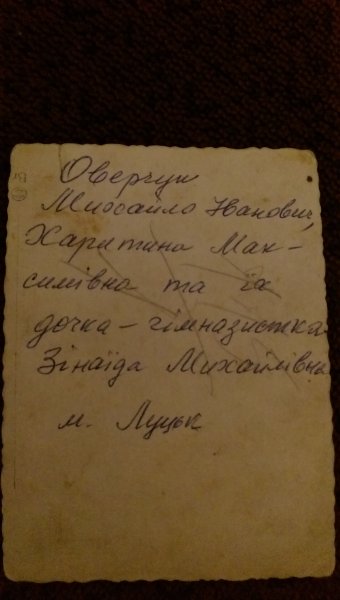 Оверчук
Михайло Іванович,
Харитина Мак-
симівна та їх
дочка - гімназистка
Зінаїда Михайлівна
м. Луцьк